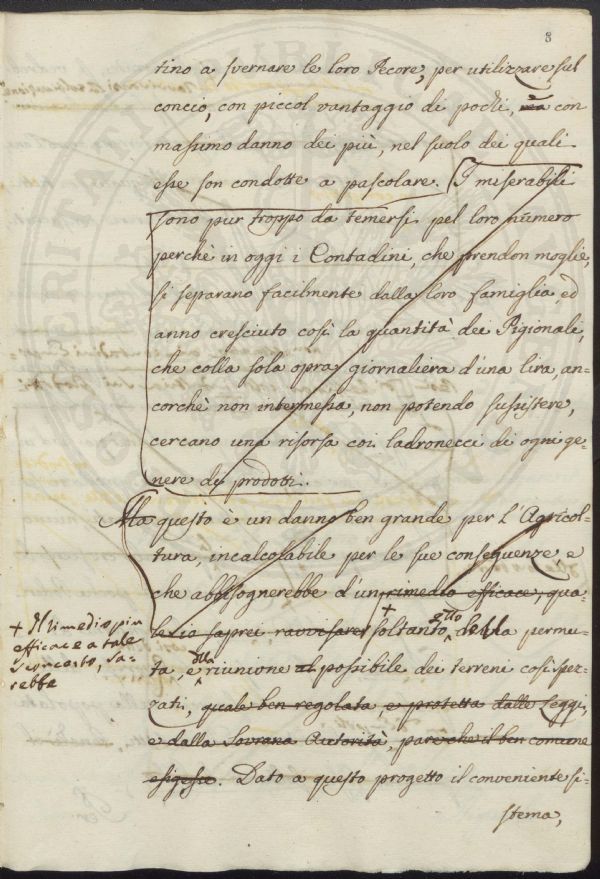 8
tino a svernare le loro Pecore, per utilizzare sul
concio, con piccol vantaggio di pochi, ma con
massimo danno dei più, nel suolo dei quali
esse son condotte a pascolare. I miserabili
sono pur troppo da temersi pel loro numero
perchè in oggi i Contadini, che prendon moglie,
si separano facilmente dalla loro famiglia, ed
anno cresciuto così la quantità dei Pigionali,
che colla sola opra giornaliera d'una lira, an-
corchè non intermessa, non potendo sussistere,
cercano una risorsa coi ladronecci di ogni ge-
nere di prodotti.
Ma questo è un danno ben grande per l'Agricol-
tura, incalcolabile per le sue conseguenze e
che abbisognerebbe d'un rimedio efficace, qua-
le io saprei ravvisare soltanto, della permu-
ta, e riunione al possibile dei terreni così sper-
rati, quale ben regolata, e protetta dalle Leggi,
e dalla Sovrana Autorità, pare che il ben comune
esigesse. Dato a questo progetto il conveniente si-
stema,
+ Il rimedio più
efficace a tale
sconcerto, sa-
rebbe
+
dlla